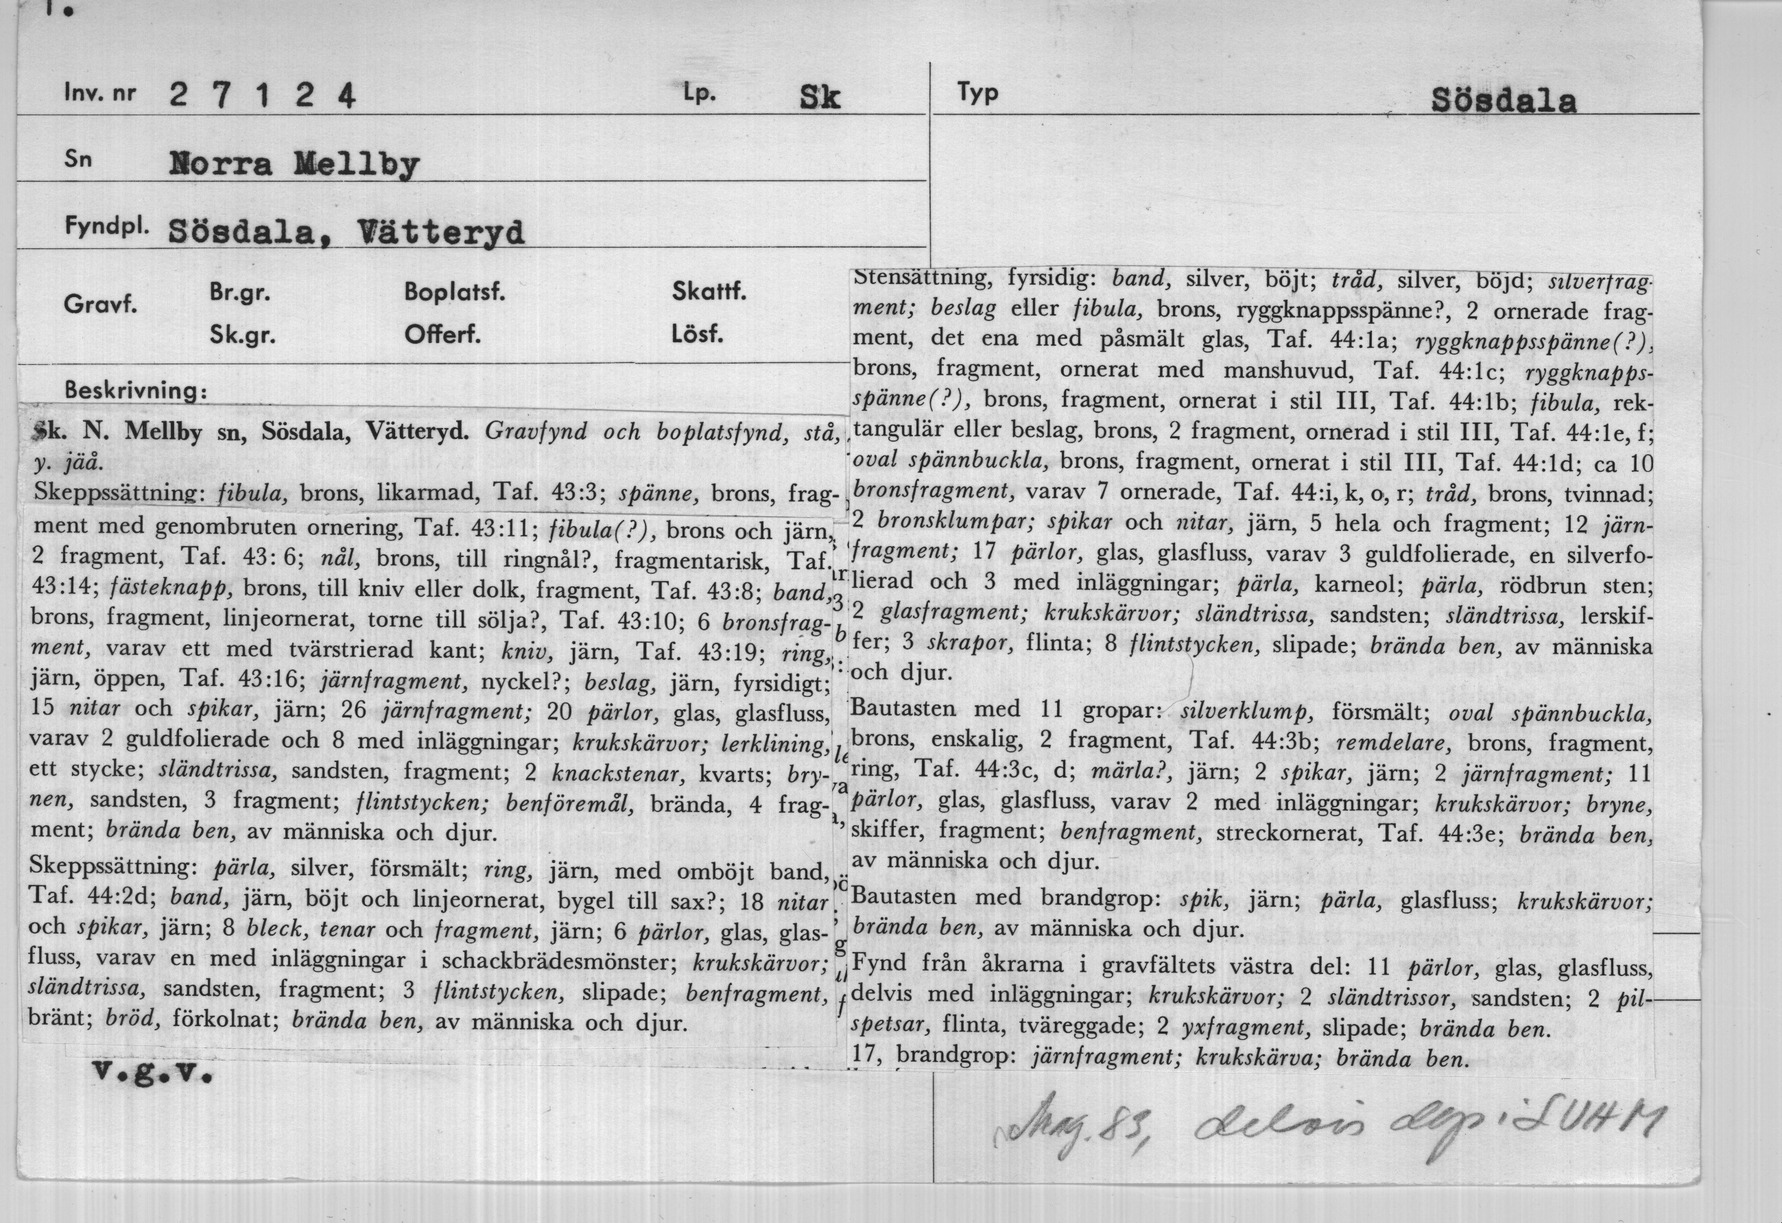 1.
Inv. nr 2 7 1 2 4 Lp. Sk Typ Sösdala
Sn Norra Mellby
Fyndpl. Sösdala, Vätteryd
Gravf. Br.gr. Boplatsf. Skattf.
Sk.gr. Offerf. Lösf.
Beskrivning:
Sk. N. Mellby sn, Sösdala, Vätteryd. Gravfynd och boplatsfynd, stå,
y. jäå.
Skeppssättning: fibula, brons, likarmad, Taf. 43:3; spänne, brons, frag-
ment med genombruten ornering, Taf. 43:11; fibula(?), brons och järn,
2 fragment, Taf. 43: 6; nål, brons, till ringnål?, fragmentarisk, Taf.
43:14; fästeknapp, brons, till kniv eller dolk, fragment, Taf. 43:8; band,
brons, fragment, linjeornerat, torne till sölja?, Taf. 43:10; 6 bronsfrag-
ment, varav ett med tvärstrierad kant; kniv, järn, Taf. 43:19; ring,
järn, öppen, Taf. 43:16; järnfragment, nyckel?; beslag, järn, fyrsidigt;
15 nitar och spikar, järn; 26 järnfragment; 20 pärlor, glas, glasfluss,
varav 2 guldfolierade och 8 med inläggningar; krukskärvor; lerklining,
ett stycke; sländtrissa, sandsten, fragment; 2 knackstenar, kvarts; bry-
nen, sandsten, 3 fragment; flintstycken; benföremål, brända, 4 frag-
ment; brända ben, av människa och djur.
Skeppssättning: pärla, silver, försmält; ring, järn, med omböjt band,
Taf. 44:2d; band, järn, böjt och linjeornerat, bygel till sax?; 18 nitar
och spikar, järn; 8 bleck, tenar och fragment, järn; 6 pärlor, glas, glas-
fluss, varav en med inläggningar i schackbrädesmönster; krukskärvor;
sländtrissa, sandsten, fragment; 3 flintstycken, slipade; benfragment,
bränt; bröd, förkolnat; brända ben, av människa och djur.
v.g.v.
Stensättning, fyrsidig: band, silver, böjt; tråd, silver, böjd; silverfrag-
ment; beslag eller fibula, brons, ryggknappsspänne?, 2 ornerade frag-
ment, det ena med påsmält glas, Taf. 44:1a; ryggknappsspänne(?),
brons, fragment, ornerat med manshuvud, Taf. 44:1c; ryggknapps-
spänne(?), brons, fragment, ornerat i stil III, Taf. 44:1b; fibula, rek-
tangulär eller beslag, brons, 2 fragment, ornerad i stil III, Taf. 44:1e, f;
oval spännbuckla, brons, fragment, ornerat i stil III, Taf. 44:1d; ca 10
bronsfragment, varav 7 ornerade, Taf. 44:i, k, o, r; tråd, brons, tvinnad;
2 bronsklumpar; spikar och nitar, järn, 5 hela och fragment; 12 järn-
fragment; 17 pärlor, glas, glasfluss, varav 3 guldfolierade, en silverfo-
lierad och 3 med inläggningar; pärla, karneol; pärla, rödbrun sten;
2 glasfragment; krukskärvor; sländtrissa, sandsten; sländtrissa, lerskif-
fer; 3 skrapor, flinta; 8 flintstycken, slipade; brända ben, av människa
och djur.
Bautasten med 11 gropar: silverklump, försmält; oval spännbuckla,
brons, enskalig, 2 fragment, Taf. 44:3b; remdelare, brons, fragment,
ring, Taf. 44:3c, d; märla?, järn; 2 spikar, järn; 2 järnfragment; 11
pärlor, glas, glasfluss, varav 2 med inläggningar; krukskärvor; bryne,
skiffer, fragment; benfragment, streckornerat, Taf. 44:3e; brända ben,
av människa och djur.
Bautasten med brandgrop: spik, järn; pärla, glasfluss; krukskärvor;
brända ben, av människa och djur.
Fynd från åkrarna i gravfältets västra del: 11 pärlor, glas, glasfluss,
delvis med inläggningar; krukskärvor; 2 sländtrissor, sandsten; 2 pil-
spetsar, flinta, tväreggade; 2 yxfragment, slipade; brända ben.
17, brandgrop: järnfragment; krukskärva; brända ben.
Mag. 83, delvis dep i LUHM